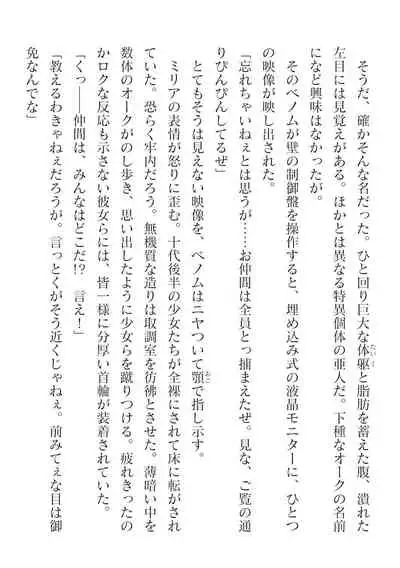 そうだ、確かそんな名だった。ひと回り巨大な体躯と脂肪を蓄えた腹、潰れた
左目には見覚えがある。ほかとは異なる特異個体の亜人だ。下種なオークの名前
になど興味はなかったが。
そのベノムが壁の制御盤を操作すると、埋め込み式の液晶モニターに、ひとつ
の映像が映し出された。
「忘れちゃいねぇとは思うが……お仲間は全員とっ捕まえたぜ。見な、ご覧の通
りぴんぴんしてるぜ」
とてもそうは見えない映像を、ベノムはニヤついて顎で指し示す。
ミリアの表情が怒りに歪む。十代後半の少女たちが全裸にされて床に転がされ
ていた。恐らく牢内だろう。無機質な造りは取調室を彷彿とさせた。薄暗い中を
数体のオークがのし歩き、思い出したように少女らを蹴りつける。疲れきったの
かロクな反応も示さない彼女らには、皆一様に分厚い首輪が装着されていた。
「くっ──仲間は、みんなはどこだ!?　言え！」
「教えるわきゃねぇだろうが。言っとくがそう近くじゃねぇ。前みてぇな目は御
免なんでな」